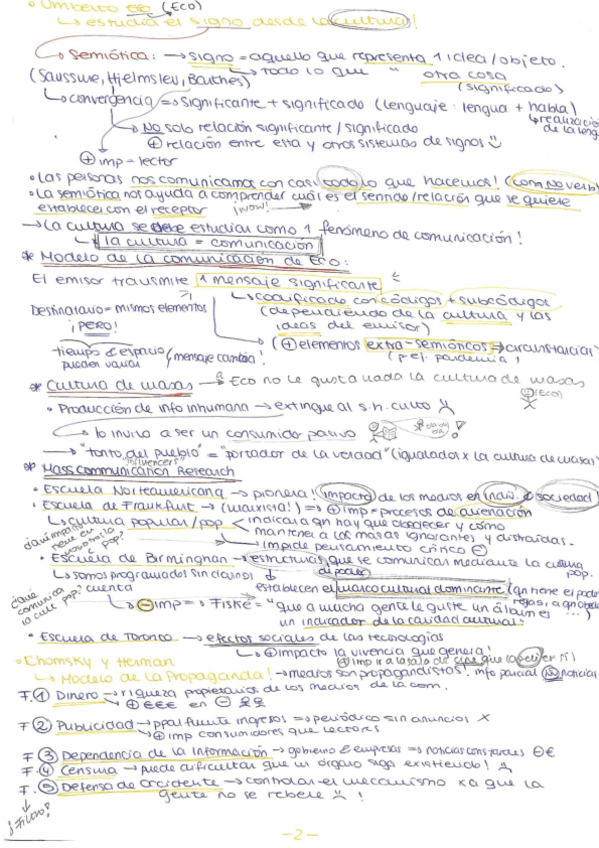 • Umberto Eco (Eco)
↳ estudia el signo desde la cultura!
↳ Semiótica: → signo = aquello que representa 1 idea/objeto.
(Saussure, Hjelmslev, Barthes) ↳ todo lo que " otra cosa
(significado)
↳ convergencia ⇒ significante + significado (lenguaje: lengua + habla)
↳ realización de la leng
↳ No solo relación significante/significado
⊕ relación entre esta y otros sistemas de signos
⊕ imp = lector
• Las personas nos comunicamos con casi todo lo que hacemos! (com. No verb)
• La semiótica nos ayuda a comprender cuál es el sentido/relación que se quiere
establecer con el receptor ¡wow!
→ La cultura se debe estudiar como 1 fenómeno de comunicación!
↳ la cultura = comunicación
* Modelo de la comunicación de Eco:
El emisor transmite 1 mensaje significante
↳ codificado con códigos + subcódigos
Destinatario = mismos elementos (dependiendo de la cultura y las
¡PERO! ideas del emisor)
(⊕ elementos extra-semióticos → circunstancias)
tiempo & espacio / mensaje cambia! (p.ej. pandemia!)
pueden variar
* Cultura de masas → a Eco no le gusta nada la cultura de masas
(Eco)
• Producción de info inhumana → extingue al s.h. culto
↳ lo invita a ser un consumidor pasivo bla bla bla
→ "tonto del pueblo" = "portador de la verdad" (igualados x la cultura de masas)
"influencers"
* Mass Communication Research
• Escuela Norteamericana → pionera! (impacto) de los medios en indiv. & sociedad
• Escuela de Frankfurt → (marxista!) → ⊕ imp = procesos de alienación
↳ cultura popular/pop < indicar a qn hay que obedecer y cómo
mantener a las masas ignorantes y distraídas.
impide pensamiento crítico ⊖
pop?
• Escuela de Birminghan → estructuras que se comunican mediante la cultura
pop.
↳ somos programados sin darnos cuenta d/ poder
establecen el marco cultural dominante (qn tiene el poder,
¿que comunica la cult pop?
↳ ⊖ imp ⇒ Fiske = "que a mucha gente le guste un álbum es ...)
un indicador de la calidad cultural"
• Escuela de Toronto → efectos sociales de las tecnologías
↳ ⊕ impacto la vivencia que genera!
⊕ imp ir a la sala de cine que la peli en sí!
• Chomsky y Herman
↳ Modelo de la Propaganda! → medios son propagandistas! info parcial No noticias
F. ① Dinero → riqueza propietarios de los medios de la com.
↳ ⊕ €€€ en ⊖
F ② Publicidad → ppal fuente ingresos ⇒ periódico sin anuncios X
↳ ⊕ imp consumidores que lectores
F ③ Dependencia de la Información → gobierno & empresas ⇒ noticias constantes ⊖€
F. ④ Censura → puede dificultar que un órgano siga existiendo!
F. ⑤ Defensa de Occidente → controlar el mecanismo xa que la
gente no se rebele !
¡Filtro!
-2-